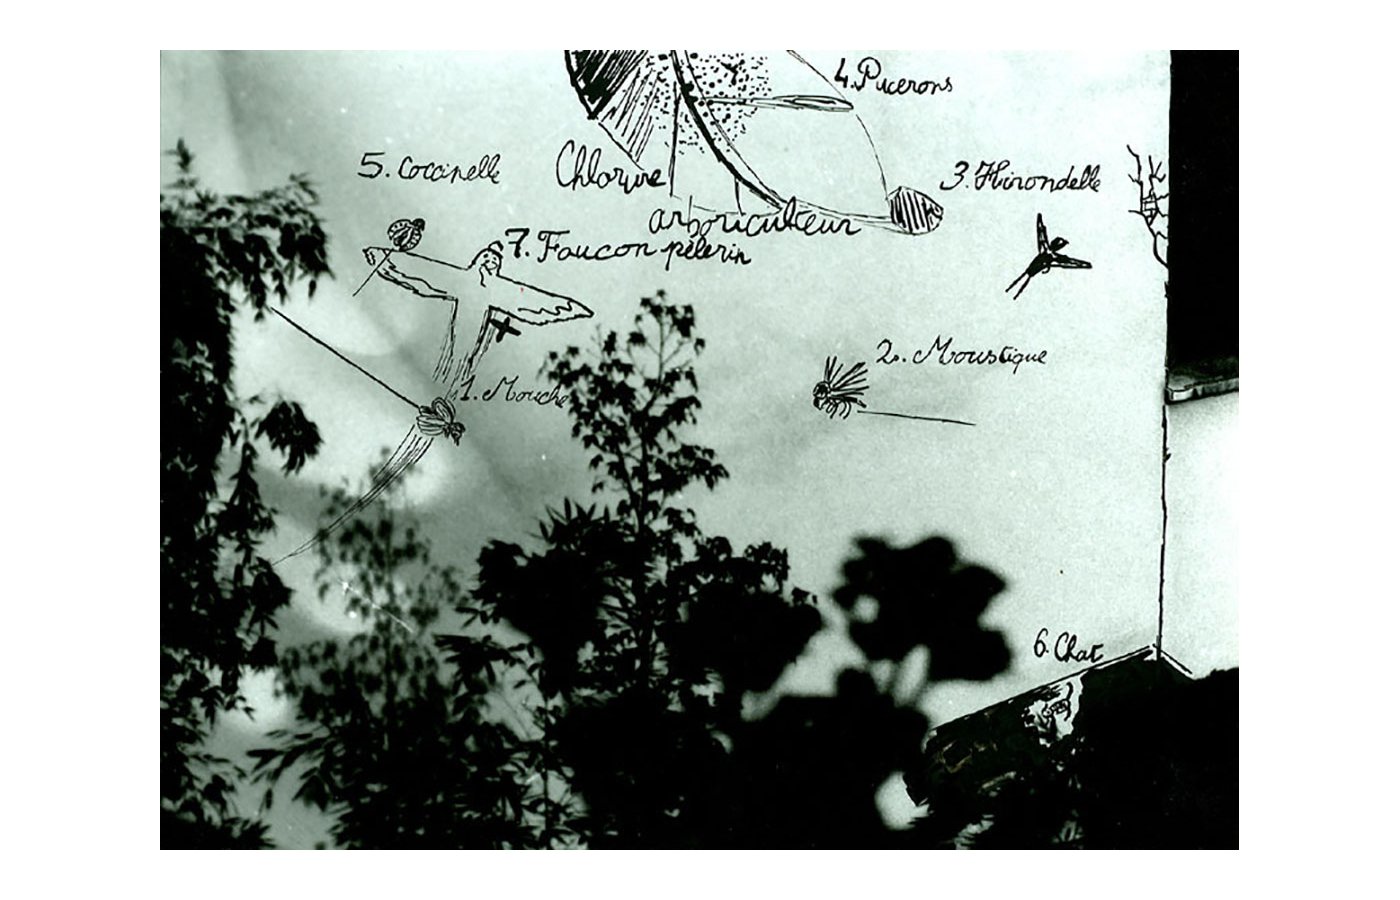 4. Pucerons
5. Coccinelle
Chlorure
3. Hirondelle
arboriculteur
7. Faucon pélerin
2. Moustique
1. Mouche
6. Chat